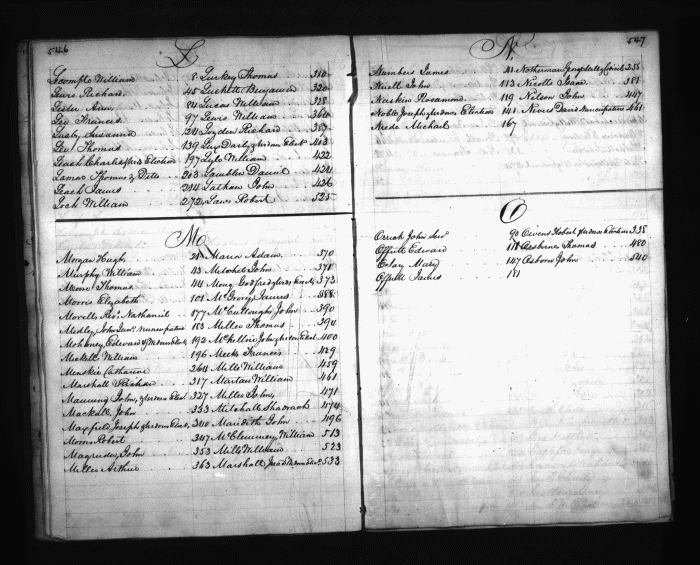 546
L
Lecompte William 8 Lurkey Thomas 310
Lewis Richard 45 Luckette Benjamin 320
Lesler Ann 84 Lucas William 328
Lee Francis 97 Lewis William 364
Lusby Susanna 124 Leyden Richard 387
Lee Thomas 139 Lee 403
Leach Charles Election 197 Lyle William 422
Lamar Thomas 2 Ditto 203 Lamblen Daniel 424
Leach James 244 Latham John 426
Loch William 272 Laws Robert 525
M
Morgan Hugh 21 Marin Adam 370
Murphy William 43 Melchet John 371
Moone Thomas 44 Mong Godfred 373
Morris Elizabeth 101 McIvory James 388
Morells Revd Nathaniel 177 McCullough John 390
Medley John Nuncupative 183 Miller Thomas 394
Edward 192 John 400
Mckell William 196 Meeks Francis 429
Menskie Catharine 264 Mills William 459
Marshall Richard 317 Martan William 461
Manning John 327 Miller John 471
Mackell John 333 Mitchell Shadrach 474
Maxfield Joseph 340 Maridith John 496
Moore Robert 347 McClemmey William 513
Magruder John 353 Mills William 523
Miller Arthur 363 Marshall 533
547
N
Numbers James 41 Notherman 358
Nuell John 113 Nicolls Isaac 381
Naskin Rosamond 119 Nelson John 447
Noble Joseph Election 141 Nevies David Nuncupative 461
Neede Michael 167
O
Orrick John 90 Owens Robert Election 338
Offutt Edward 111 Osbirne Thomas 480
Mary 147 Osborn John 540
Offutt James 181